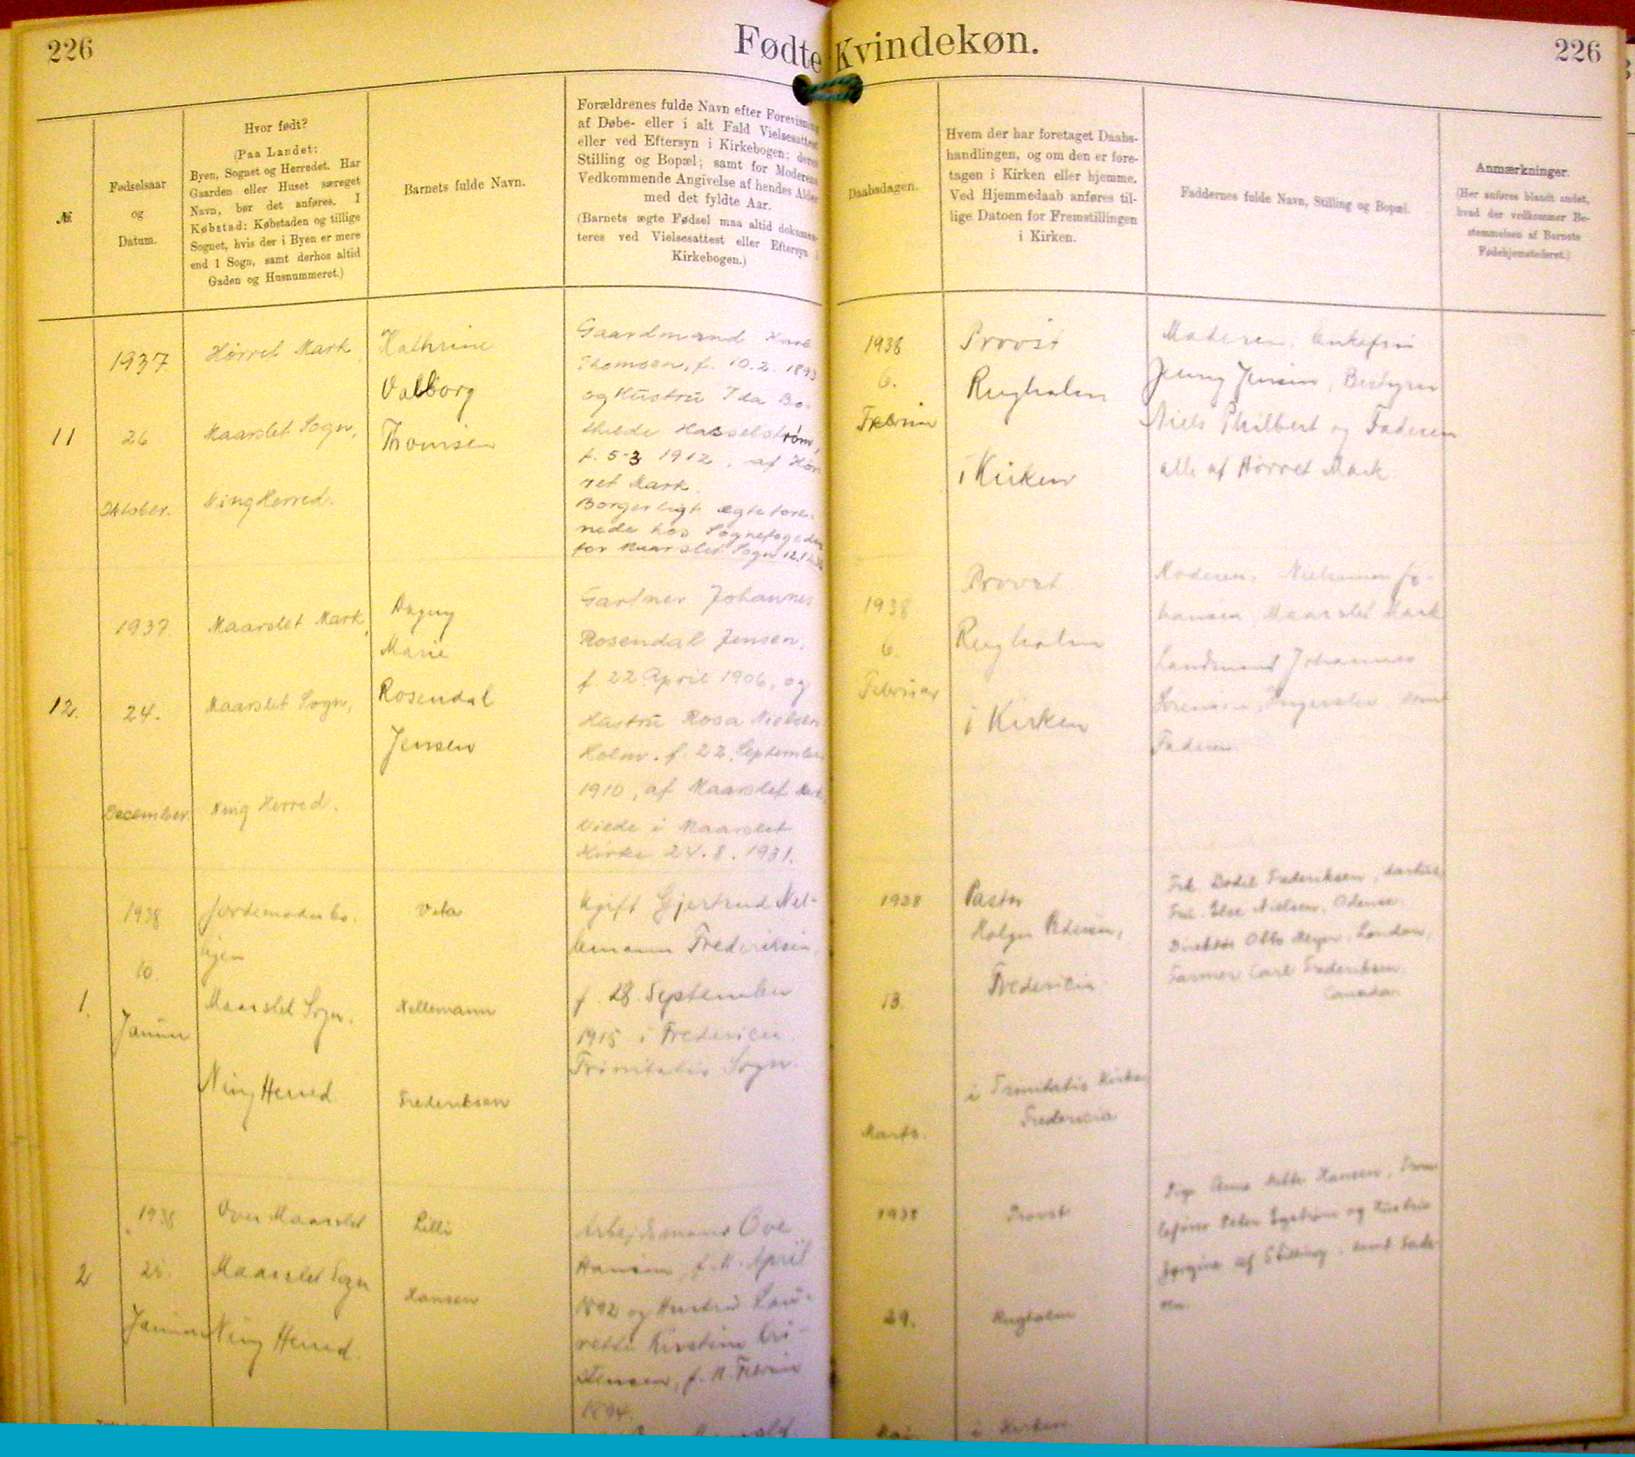 226
Fødte Kvindekøn.
226
№
Fødselsaar
og
Datum.
Hvor født?
(Paa Landet:
Byen, Sognet og Herredet. Har
Gaarden eller Huset særeget
Navn, bør det anføres. I
Købstad: Købstaden og tillige
Sognet, hvis der i Byen er mere
end 1 Sogn, samt derhos altid
Gaden og Husnummeret.)
Barnets fulde Navn.
Forældrenes fulde Navn efter Forevisning
af Døbe- eller i alt Fald Vielsesattest
eller ved Eftersyn i Kirkebogen; deres
Stilling og Bopæl; samt for Moderens
Vedkommende Angivelse af hendes Alder
med det fyldte Aar.
(Barnets ægte Fødsel maa altid dokumen-
teres ved Vielsesattest eller Eftersyn i
Kirkebogen.)
Daabsdagen.
Hvem der har foretaget Daabs-
handlingen, og om den er fore-
tagen i Kirken eller hjemme.
Ved Hjemmedaab anføres til-
lige Datoen for Fremstillingen
i Kirken.
Faddernes fulde Navn, Stilling og Bopæl.
Anmærkninger.
(Her anføres blandt andet,
hvad der vedkommer Be-
stemmelsen af Barnets
Fødehjemstederet.)
11
1937
26
Oktober.
Hørret Mark
Maarslet Sogn,
Ning Herred.
Kathrine
Valborg
Thomsen
Gaardmand
Thomsen, f. 10.2. 1893
og Hustru Ida Bo-
thilde Hasselstrøm,
f. 5-3 1912, af Hør
ret Mark.
Borgerligt ægtefore-
nede hos Sognefogeden
for Maarslet Sogn
1938
6.
Februar
Provst
Rugholm
i Kirken
Moderen,
Jenny Jensen, Bestyrer
Niels Philbert og Faderen
alle af Hørret Mark
12.
1937
24.
December.
Maarslet Mark,
Maarslet Sogn,
Ning Herred.
Dagny
Marie
Rosendal
Jensen
Gartner Johannes
Rosendal Jensen,
f. 22 April 1906, og
Hustru Rosa Nielsen
Holm, f. 22. September
1910, af Maarslet Mark,
Viede i Maarslet
Kirke 24.8.1931.
1938
6.
Februar
Provst
Rugholm
i Kirken
Moderen, Jo-
hansen Maarslet Mark
Landmand Johannes
Sørensen, samt
Faderen
1.
1938
10.
Januar
Jordemoderbo-
ligen
Maarslet Sogn.
Ning Herred
Vita
Nellemann
Frederiksen
Ugift Gjertrud Nel-
lemann Frederiksen,
f. 28. September
1915 i Fredericia
Trinitatis Sogn.
1938
13.
Marts.
Pastor
Holger Pedersen,
Fredericia
i Trinitatis Kirke
Fredericia
Frk. Bodil Frederiksen,
Frk. Else Nielsen, Odense,
Direktør Otto Meyer, London,
Farmer Carl Frederiksen
Canada.
2
1938
Januar
Over Maarslet
Maarslet Sogn
Ning Herred.
Lilli
Hansen
Arbejdsmand Ove
Hansen, f. 11. April
1892 og Hustru Lau-
rette Kirstine Kri-
stensen, f. 11. Februar
1894.
1938
29.
Maj
Provst
Rugholm
i Kirken
Pige Anna Hansen,
Peter og Hustru
Jørgine af Stilling, samt Fade-
ren.